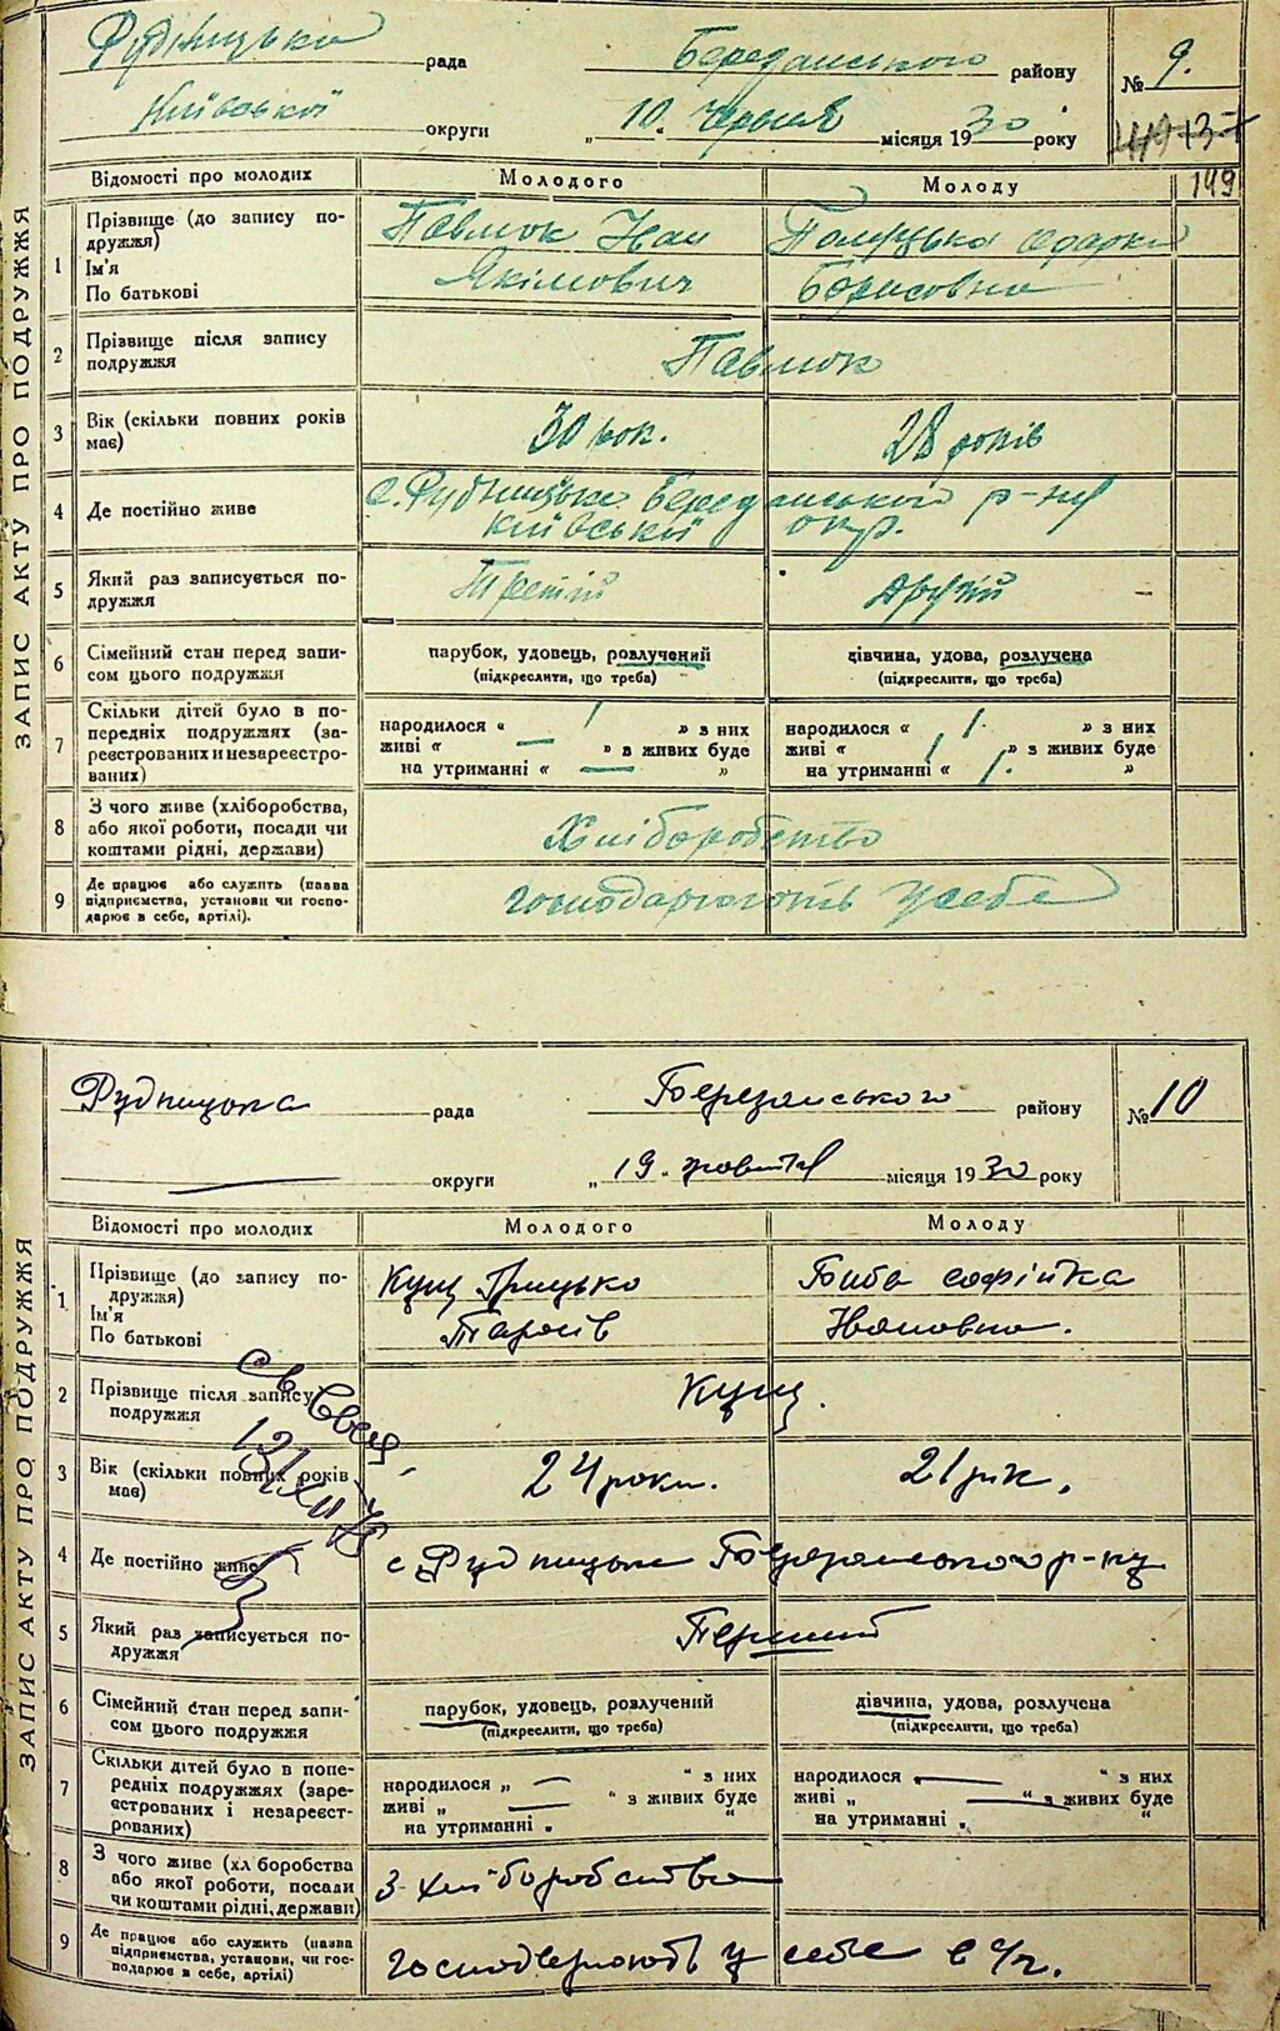 Рудницька рада Березанського району № 9.
Київської округи „10„ червня місяця 1930 року
149
ЗАПИС АКТУ ПРО ПОДРУЖЖЯ
Відомості про молодих Молодого Молоду
1 Прізвище (до запису по-
дружжя)
Ім'я
По батькові
Павлюк Іван
Якімович
Одарка
Борисовна
2 Прізвище після запису
подружжя
Павлюк
3 Вік (скільки повних років
має)
30 рок. 28 років
4 Де постійно живе
с. Рудницьке Березанського р-ну
Київської окр.
5 Який раз записується по-
дружжя
Третій Другий
6 Сімейний стан перед запи-
сом цього подружжя
парубок, удовець, розлучений
(підкреслити, що треба)
дівчина, удова, розлучена
(підкреслити, що треба)
7 Скільки дітей було в по-
передніх подружжях (за-
реєстрованих и незареєстро-
ваних)
народилося « 1 » з них
живі « — » з живих буде
на утриманні « — »
народилося « 1. » з них
живі « 1 » з живих буде
на утриманні « 1. »
8 З чого живе (хліборобства,
або якої роботи, посади чи
коштами рідні, держави)
Хліборобство
9 Де працює або служить (назва
підприємства, установи чи госпо-
дарює в себе, артілі).
господарюють у себе
Рудницька рада Березанського району № 10
— округи „19„ жовтня місяця 1930 року
ЗАПИС АКТУ ПРО ПОДРУЖЖЯ
Відомості про молодих Молодого Молоду
1 Прізвище (до запису по-
дружжя)
Ім'я
По батькові
Кущ Грицько
Тарасів
Софійка
Івановна.
2 Прізвище після запису
подружжя
Кущ.
3 Вік (скільки повних років
має)
24 роки. 21 рік.
4 Де постійно живе
с Рудницьке Березанського р-ну
5 Який раз записується по-
дружжя
Перший
6 Сімейний стан перед запи-
сом цього подружжя
парубок, удовець, розлучений
(підкреслити, що треба)
дівчина, удова, розлучена
(підкреслити, що треба)
7 Скільки дітей було в попе-
редніх подружжях (заре-
єстрованих і незареєст-
рованих)
народилося „ — “ з них
живі „ — “ з живих буде
на утриманні „ “
народилося „ — “ з них
живі „ — “ з живих буде
на утриманні „ “
8 З чого живе (хл боробства
або якої роботи, посади
чи коштами рідні, держави)
З хліборобства
9 Де працює або служить (назва
підприємства, установи, чи гос-
подарює в себе, артілі)
господарюють у себе в с/г.